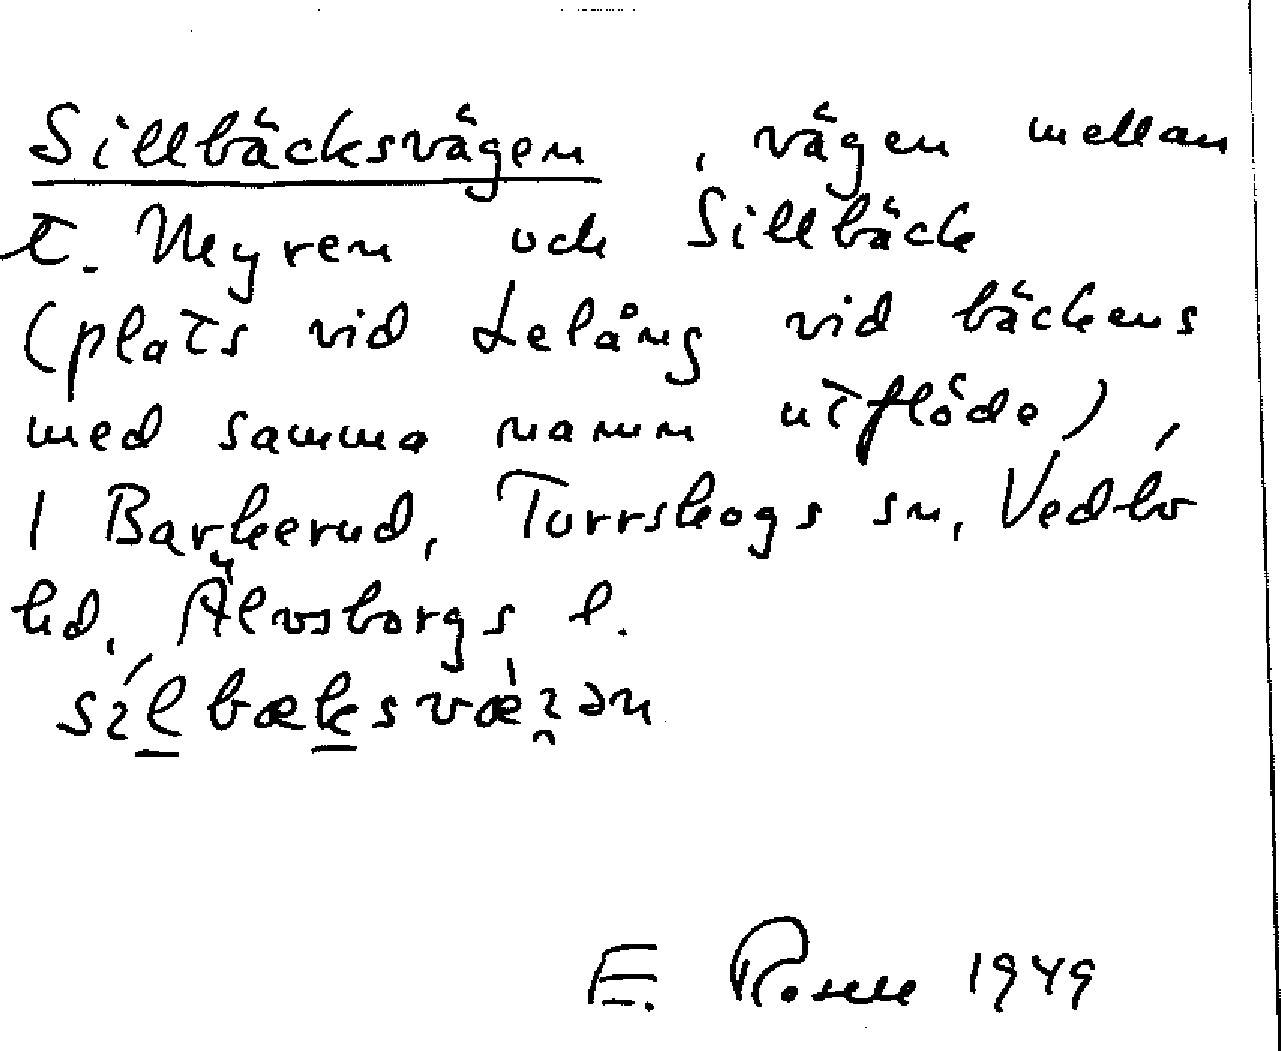 Sillbäcksvägen, vägen mellan
t. Myren och Sillbäck
(plats vid Lelång vid bäckens
med samma namn utflöde),
i Barkerud, Torrskogs sn, Vedbo
hd, Älvsborgs l.
E. Rosell 1949